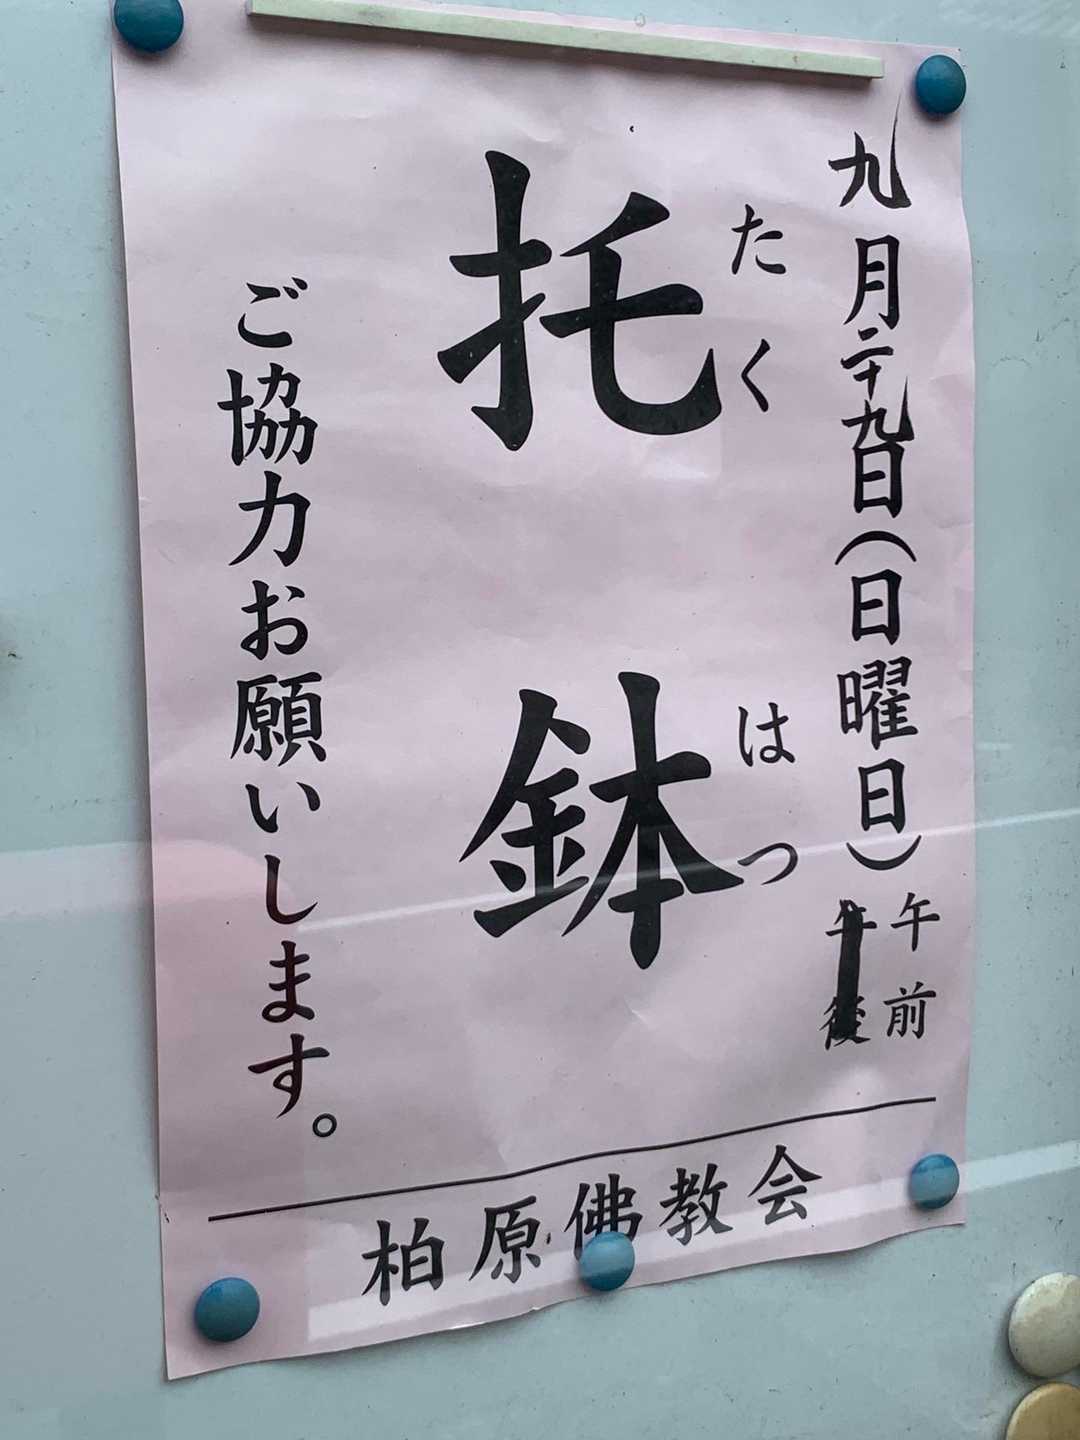 九月二十九日（日曜日）
午前
午後
たくはつ
托鉢
ご協力お願いします。
柏原佛教会